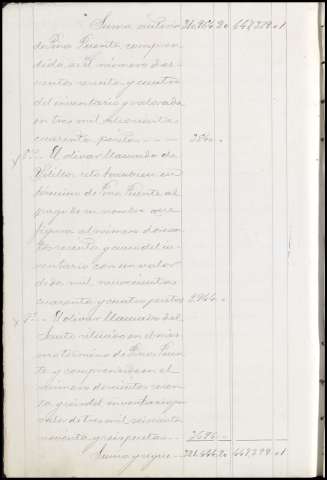 Suma anterior 310,964,20 648379 01
de Pino Puente, compren-
dida en el número dos-
cientos sesenta y cuatro
del inventario y valorada
en tres mil ochocientas
cuarenta pesetas - - - 3840 "
Olivar llamado de
sito tambien en
término de Pino Puente al
pago de su nombre que
figura al número doscien-
tos sesenta y cinco del in-
ventario con un valor
de dos mil novecientas
cuarenta y cuatro pesetas 2944 "
Olivar llamado del
Santo situado en el mis-
mo término de Pino Puen-
te y comprendido en el
número doscientos sesen-
ta y seis del inventario en
valor de tres mil seiscientas
noventa y seis pesetas - - 3696 "
Suma y sigue - 321,444,20 648379 01